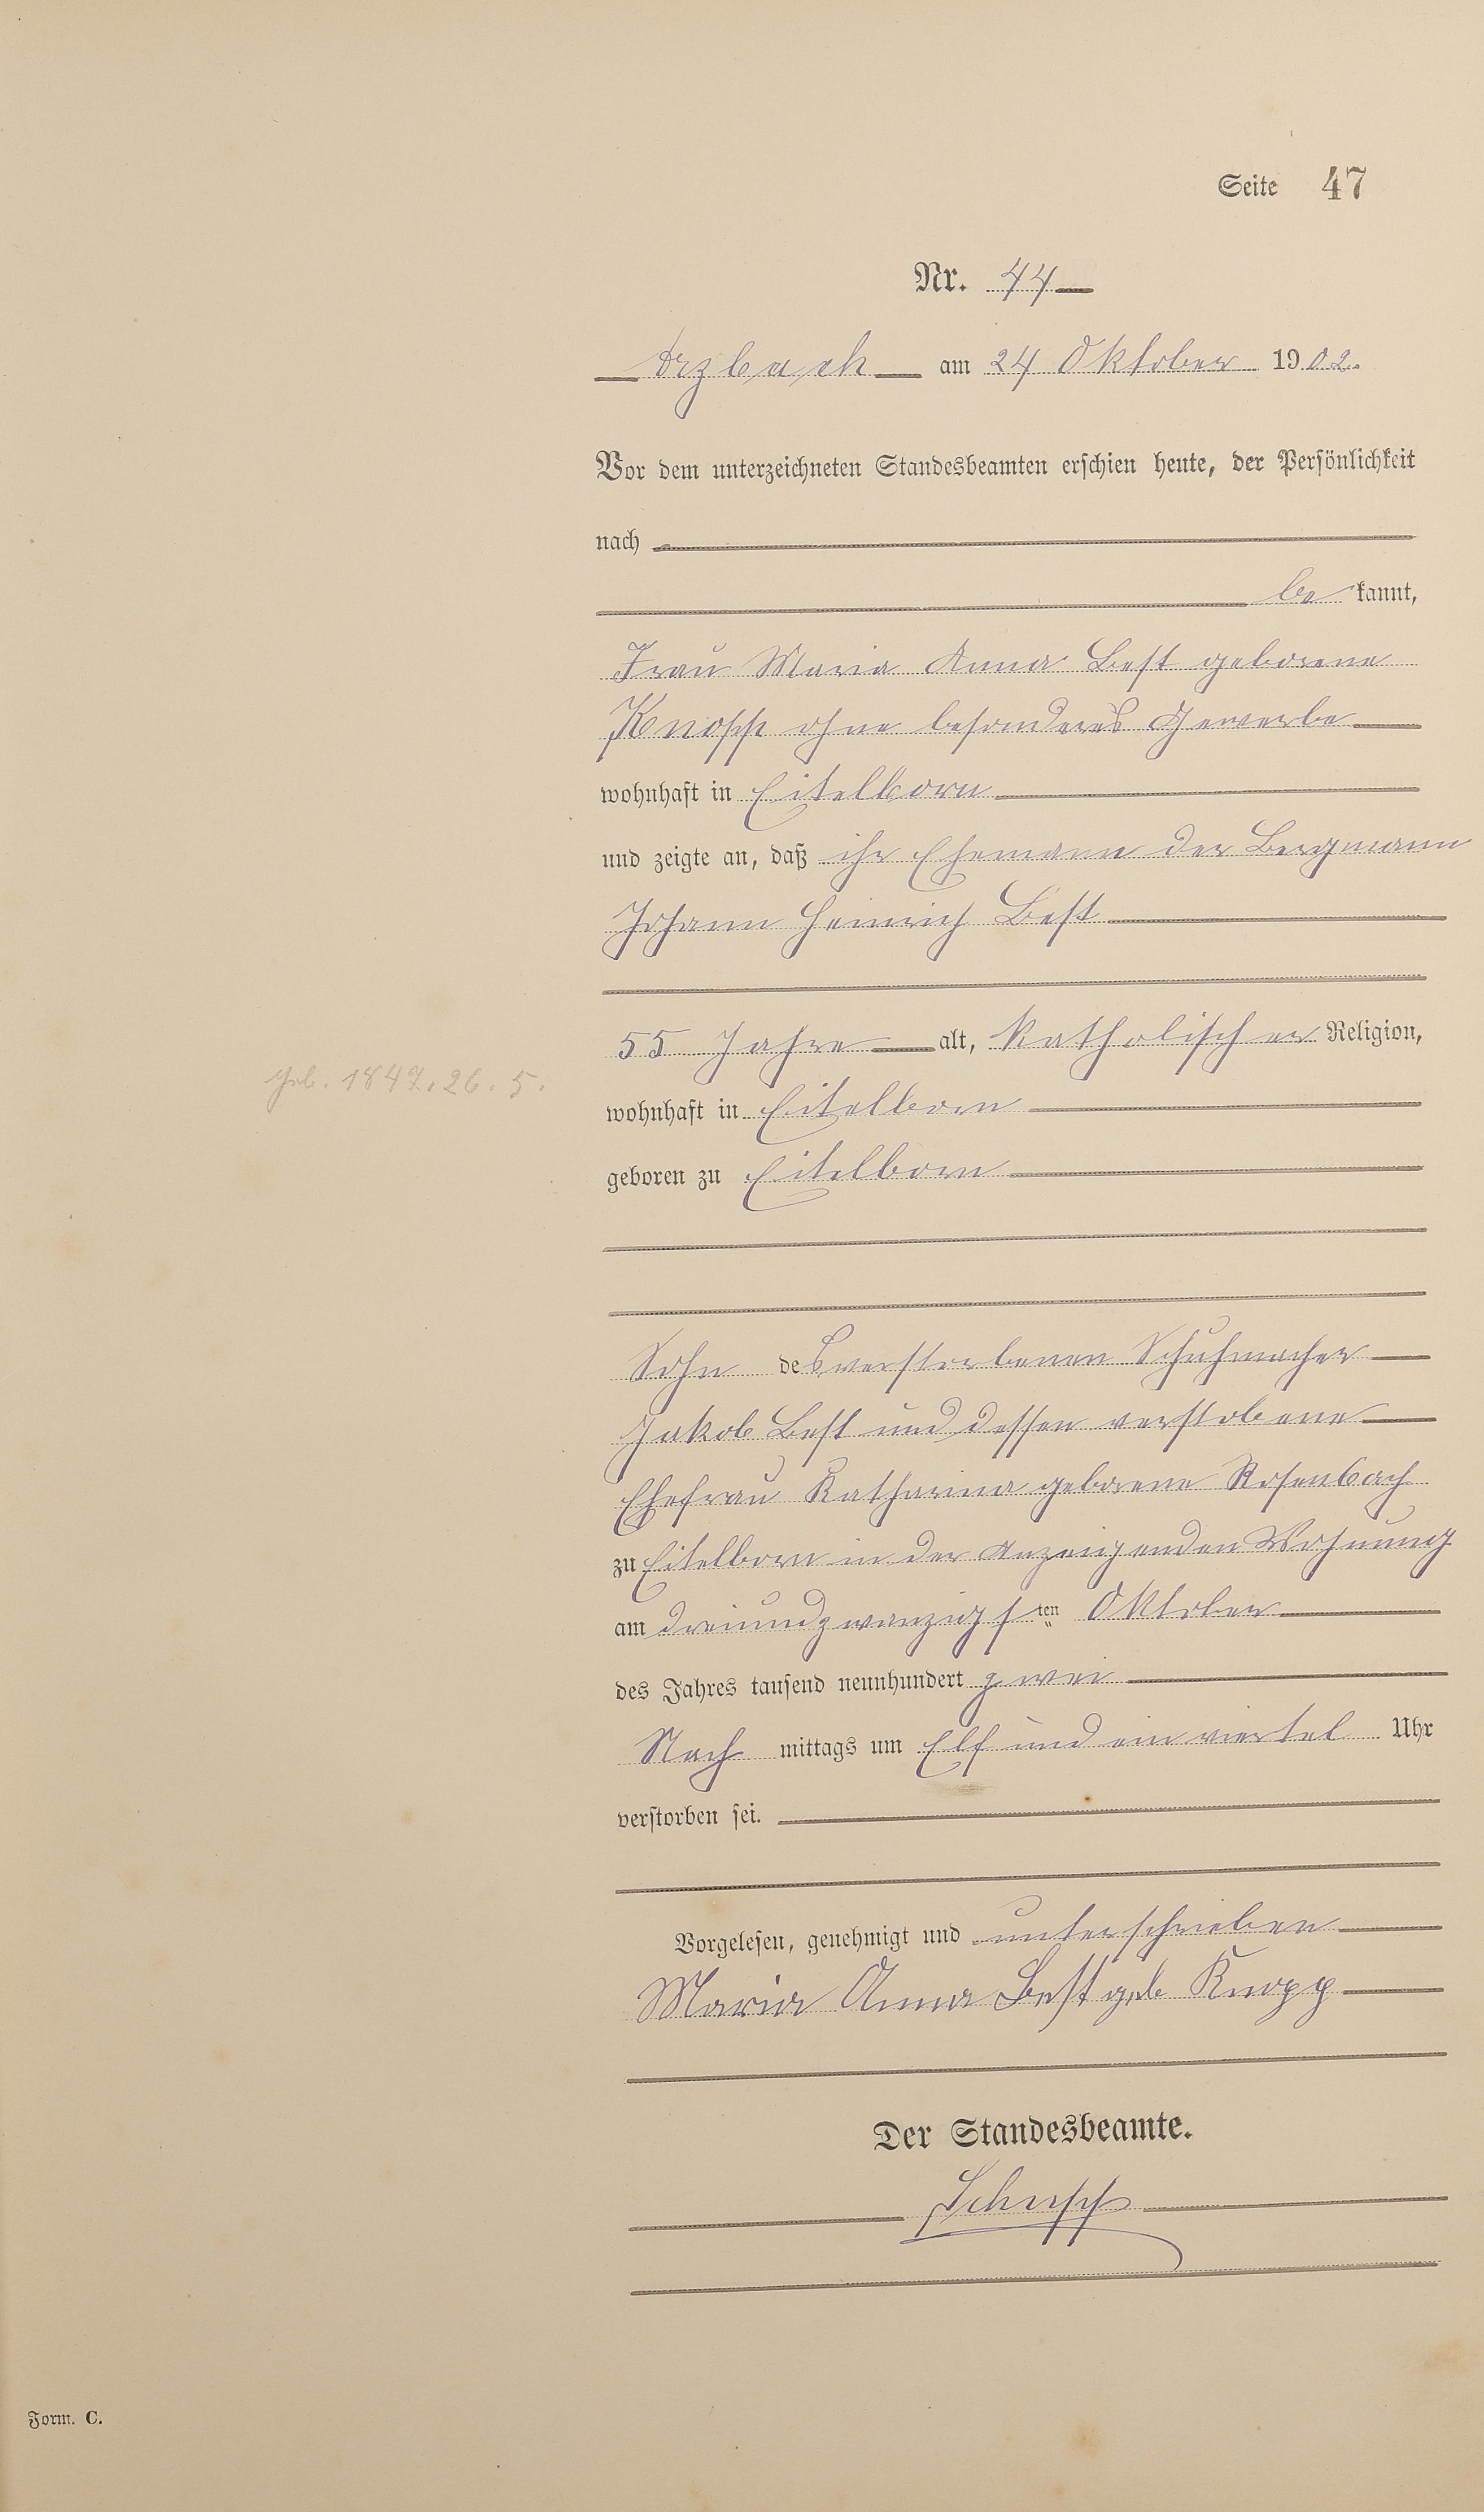 Seite 47
Nr. 44
Arzbach am 24 Oktober 1902.
Vor dem unterzeichneten Standesbeamten erschien heute, der Persönlichkeit
nach
be kannt,
Frau Maria Anna Best geborene
Knopp ohne besonderes Gewerbe
wohnhaft in Eitelborn
und zeigte an, daß ihr Ehemann der Bergmann
Johann Heinrich Best
55 Jahre alt, katholischer Religion,
geb. 1847. 26. 5.
wohnhaft in Eitelborn
geboren zu Eitelborn
Sohn des verstorbenen Schuhmacher
Jakob Best und dessen verstobene
Ehefrau Katharina geborene Rosenbach
zu Eitelborn in der Anzeigenden Wohnung
am dreiundzwanzigsten Oktober
des Jahres tausend neunhundert zwei
Nach mittags um Elf und ein viertel Uhr
verstorben sei.
Vorgelesen, genehmigt und unterschrieben
Maria Anna Best geb Knopp
Der Standesbeamte.
Form. C.